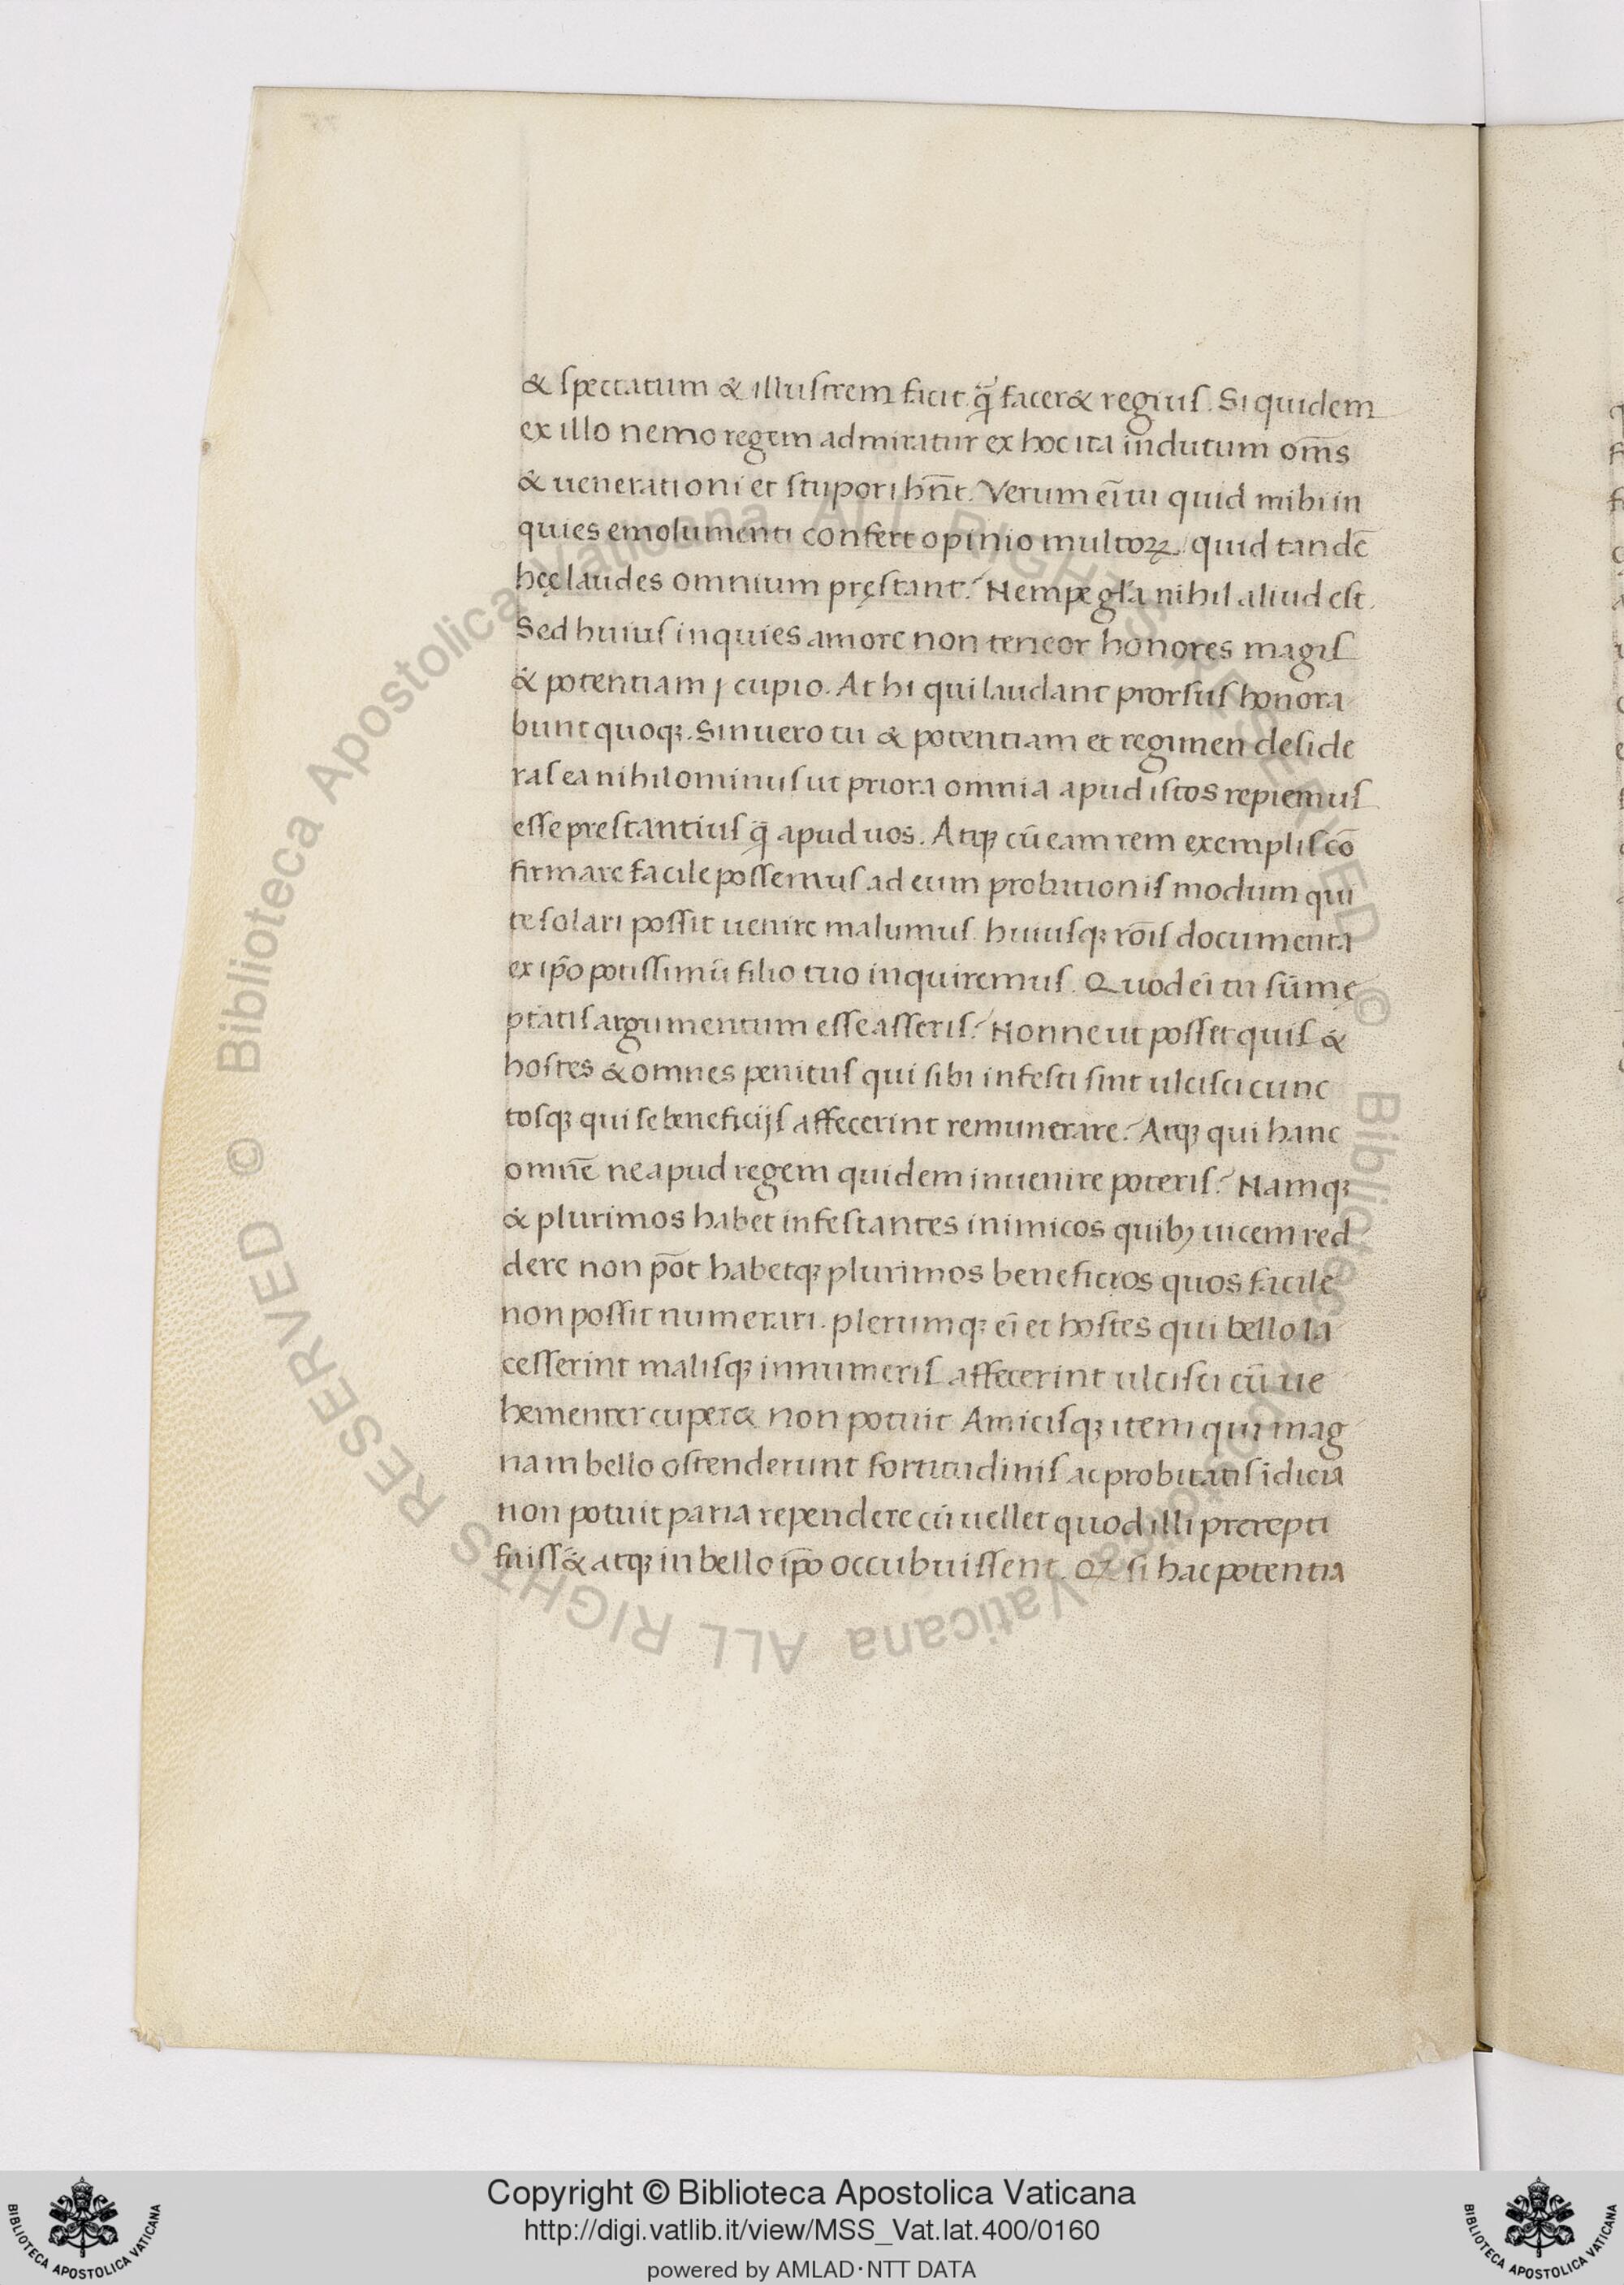 & spectatum & illustrem facit. q̃ facer& regius. Siquidem
ex illo nemo regem admiratur ex hoc ita indutum om̄s
& uenerationi et stupori hn̄t. Verum eī tu quid mihi in
quies emolumenti confert opinio multoꝝ. quid tandē
hęc laudes omnium pręstant? Nempe gl̄a nihil aliud est.
Sed huius inquies amore non teneor honores magis
& potentiam cupio. At hi qui laudant prorsus honora
bunt quoqꝫ. Sin uero tu & potentiam et regimen deside
ras ea nihilominus ut priora omnia apud istos repiemus
esse prestantius q̃ apud uos. Atqꝫ cū eam rem exemplis cō
firmare facile possemus ad eum probationis modum qui
te solari possit uenire malumus. huiusqꝫ rōis documenta
ex ip̄o potissimū filio tuo inquiremus. Quod eī tu sūmę
ptātis argumentum esse asseris? Nonne ut posset quis &
hostes & omnes penitus qui sibi infesti sint ulcisci cunc
tosqꝫ qui se beneficijs affecerint remunerare? Atqꝫ qui hanc
omnē ne apud regem quidem inuenire poteris? Namqꝫ
& plurimos habet infestantes inimicos quibꝫ uicem red
dere non pōt habetqꝫ plurimos beneficios quos facile
non possit numerari. plerumqꝫ eī et hostes qui bello la
cesserint malisqꝫ innumeris affecerint ulcisci cū ue
hementer cuper& non potuit Amicisqꝫ item qui mag
nam bello ostenderunt fortitudinis ac probitatis īdicia
non potuit paria rependere cū uellet quod illi prerepti
fuiss& atqꝫ in bello ip̄o occubuissent. Qꝫ si hac potentia
Copyright © Biblioteca Apostolica Vaticana
http://digi.vatlib.it/view/MSS_Vat.lat.400/0160
powered by AMLAD·NTT DATA